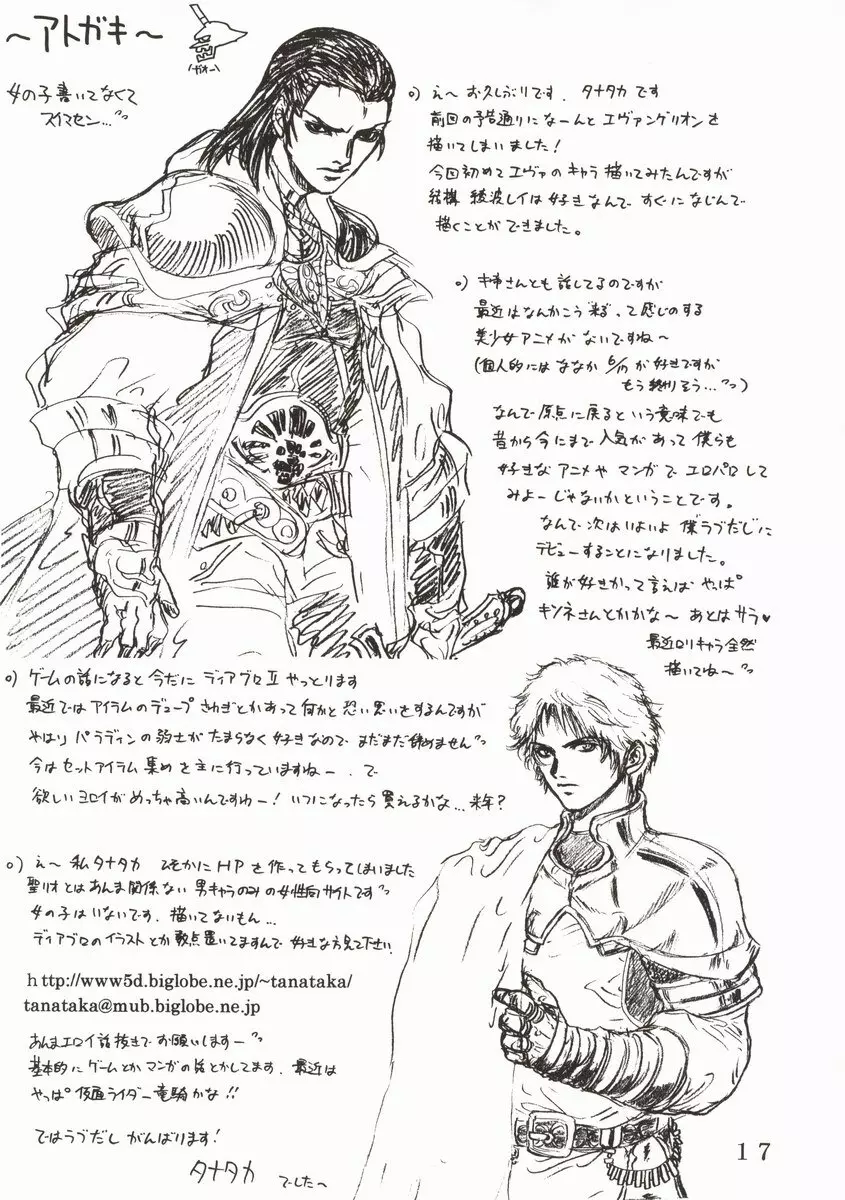 ～アトガキ～
(ガオー)
女の子書いてなくて
スイマセン…
え～お久しぶりです．タナタカです
前回の予告通りになーんとエヴァンゲリオンを
描いてしまいました！
今回初めてエヴァのキャラ描いてみたんですが
結構 綾波レイは好きなんですぐになじんで
描くことができました。
姉さんとも話してるのですが
最近はなんかこう"来る"って感じのする
美少女アニメがないですね～
(個人的にはななか6/17が好きですが
もう終りそう…)
なんで原点に戻るという意味でも
昔から今にまで人気があって僕らも
好きなアニメやマンガでエロパロして
みよーじゃないかということです。
なんで次はいよいよ僕ラブだしに
デビューすることになりました。
誰が好きかって言えばやっぱ
キツネさんとかかな～あとはサラ♥
最近ロリキャラ全然
描いてね～
ゲームの話になると今だにディアブロⅡやっとります
最近ではアイテムのデュープさわぎとかあって何かと恐い思いをするんですが
やはりパラディンの騎士がたまらなく好きなのでまだまだ諦めません
今はセットアイテム集めを主に行っていますねー．で
欲しいヨロイがめっちゃ高いんですわー！いつになったら買えるかな…来年？
え～私タナタカ ひそかにHPを作ってもらってしまいました
聖リオとはあんま関係ない男キャラのみの女性向サイトです
女の子はいないです．描いてないもん…
ディアブロのイラストとか数点置いてますんで好きな方見て下さい
http://www5d.biglobe.ne.jp/~tanataka/
tanataka@mub.biglobe.ne.jp
あんまエロイ話抜きでお願いします―
基本的にゲームとかマンガの話とかしてます．最近は
やっぱ仮面ライダー竜騎かな!!
ではラブだしがんばります！
タナタカ でした～
17